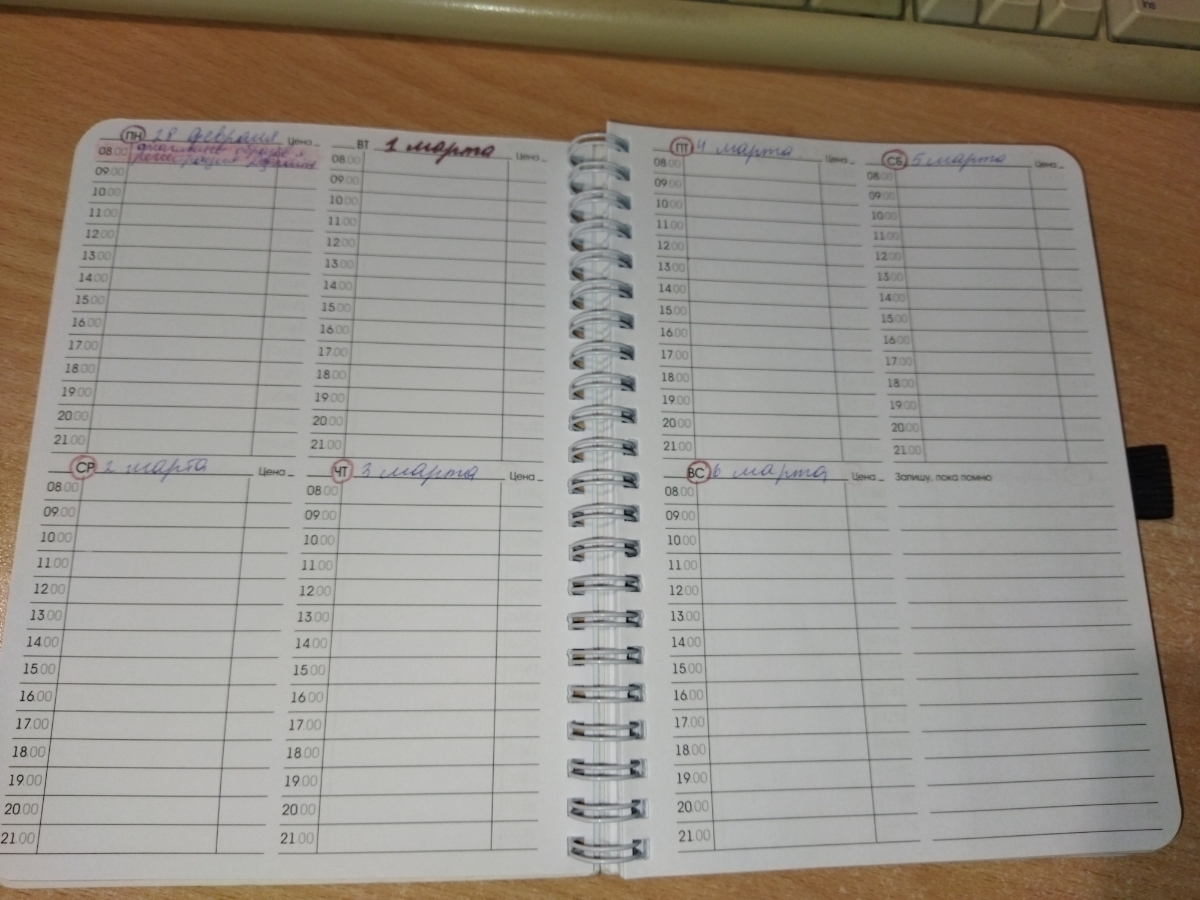 ins
ПН 28 февраля Цена
08:00
09:00
10:00
11:00
12:00
13:00
14:00
15:00
16:00
17:00
18:00
19:00
20:00
21:00
ВТ 1 марта Цена
08:00
09:00
10:00
11:00
12:00
13:00
14:00
15:00
16:00
17:00
18:00
19:00
20:00
21:00
СР 2 марта Цена
08:00
09:00
10:00
11:00
12:00
13:00
14:00
15:00
16:00
17:00
18:00
19:00
20:00
21:00
ЧТ 3 марта Цена
08:00
09:00
10:00
11:00
12:00
13:00
14:00
15:00
16:00
17:00
18:00
19:00
20:00
21:00
ПТ 4 марта Цена
08:00
09:00
10:00
11:00
12:00
13:00
14:00
15:00
16:00
17:00
18:00
19:00
20:00
21:00
СБ 5 марта Цена
08:00
09:00
10:00
11:00
12:00
13:00
14:00
15:00
16:00
17:00
18:00
19:00
20:00
21:00
ВС 6 марта Цена
08:00
09:00
10:00
11:00
12:00
13:00
14:00
15:00
16:00
17:00
18:00
19:00
20:00
21:00
Запишу, пока помню